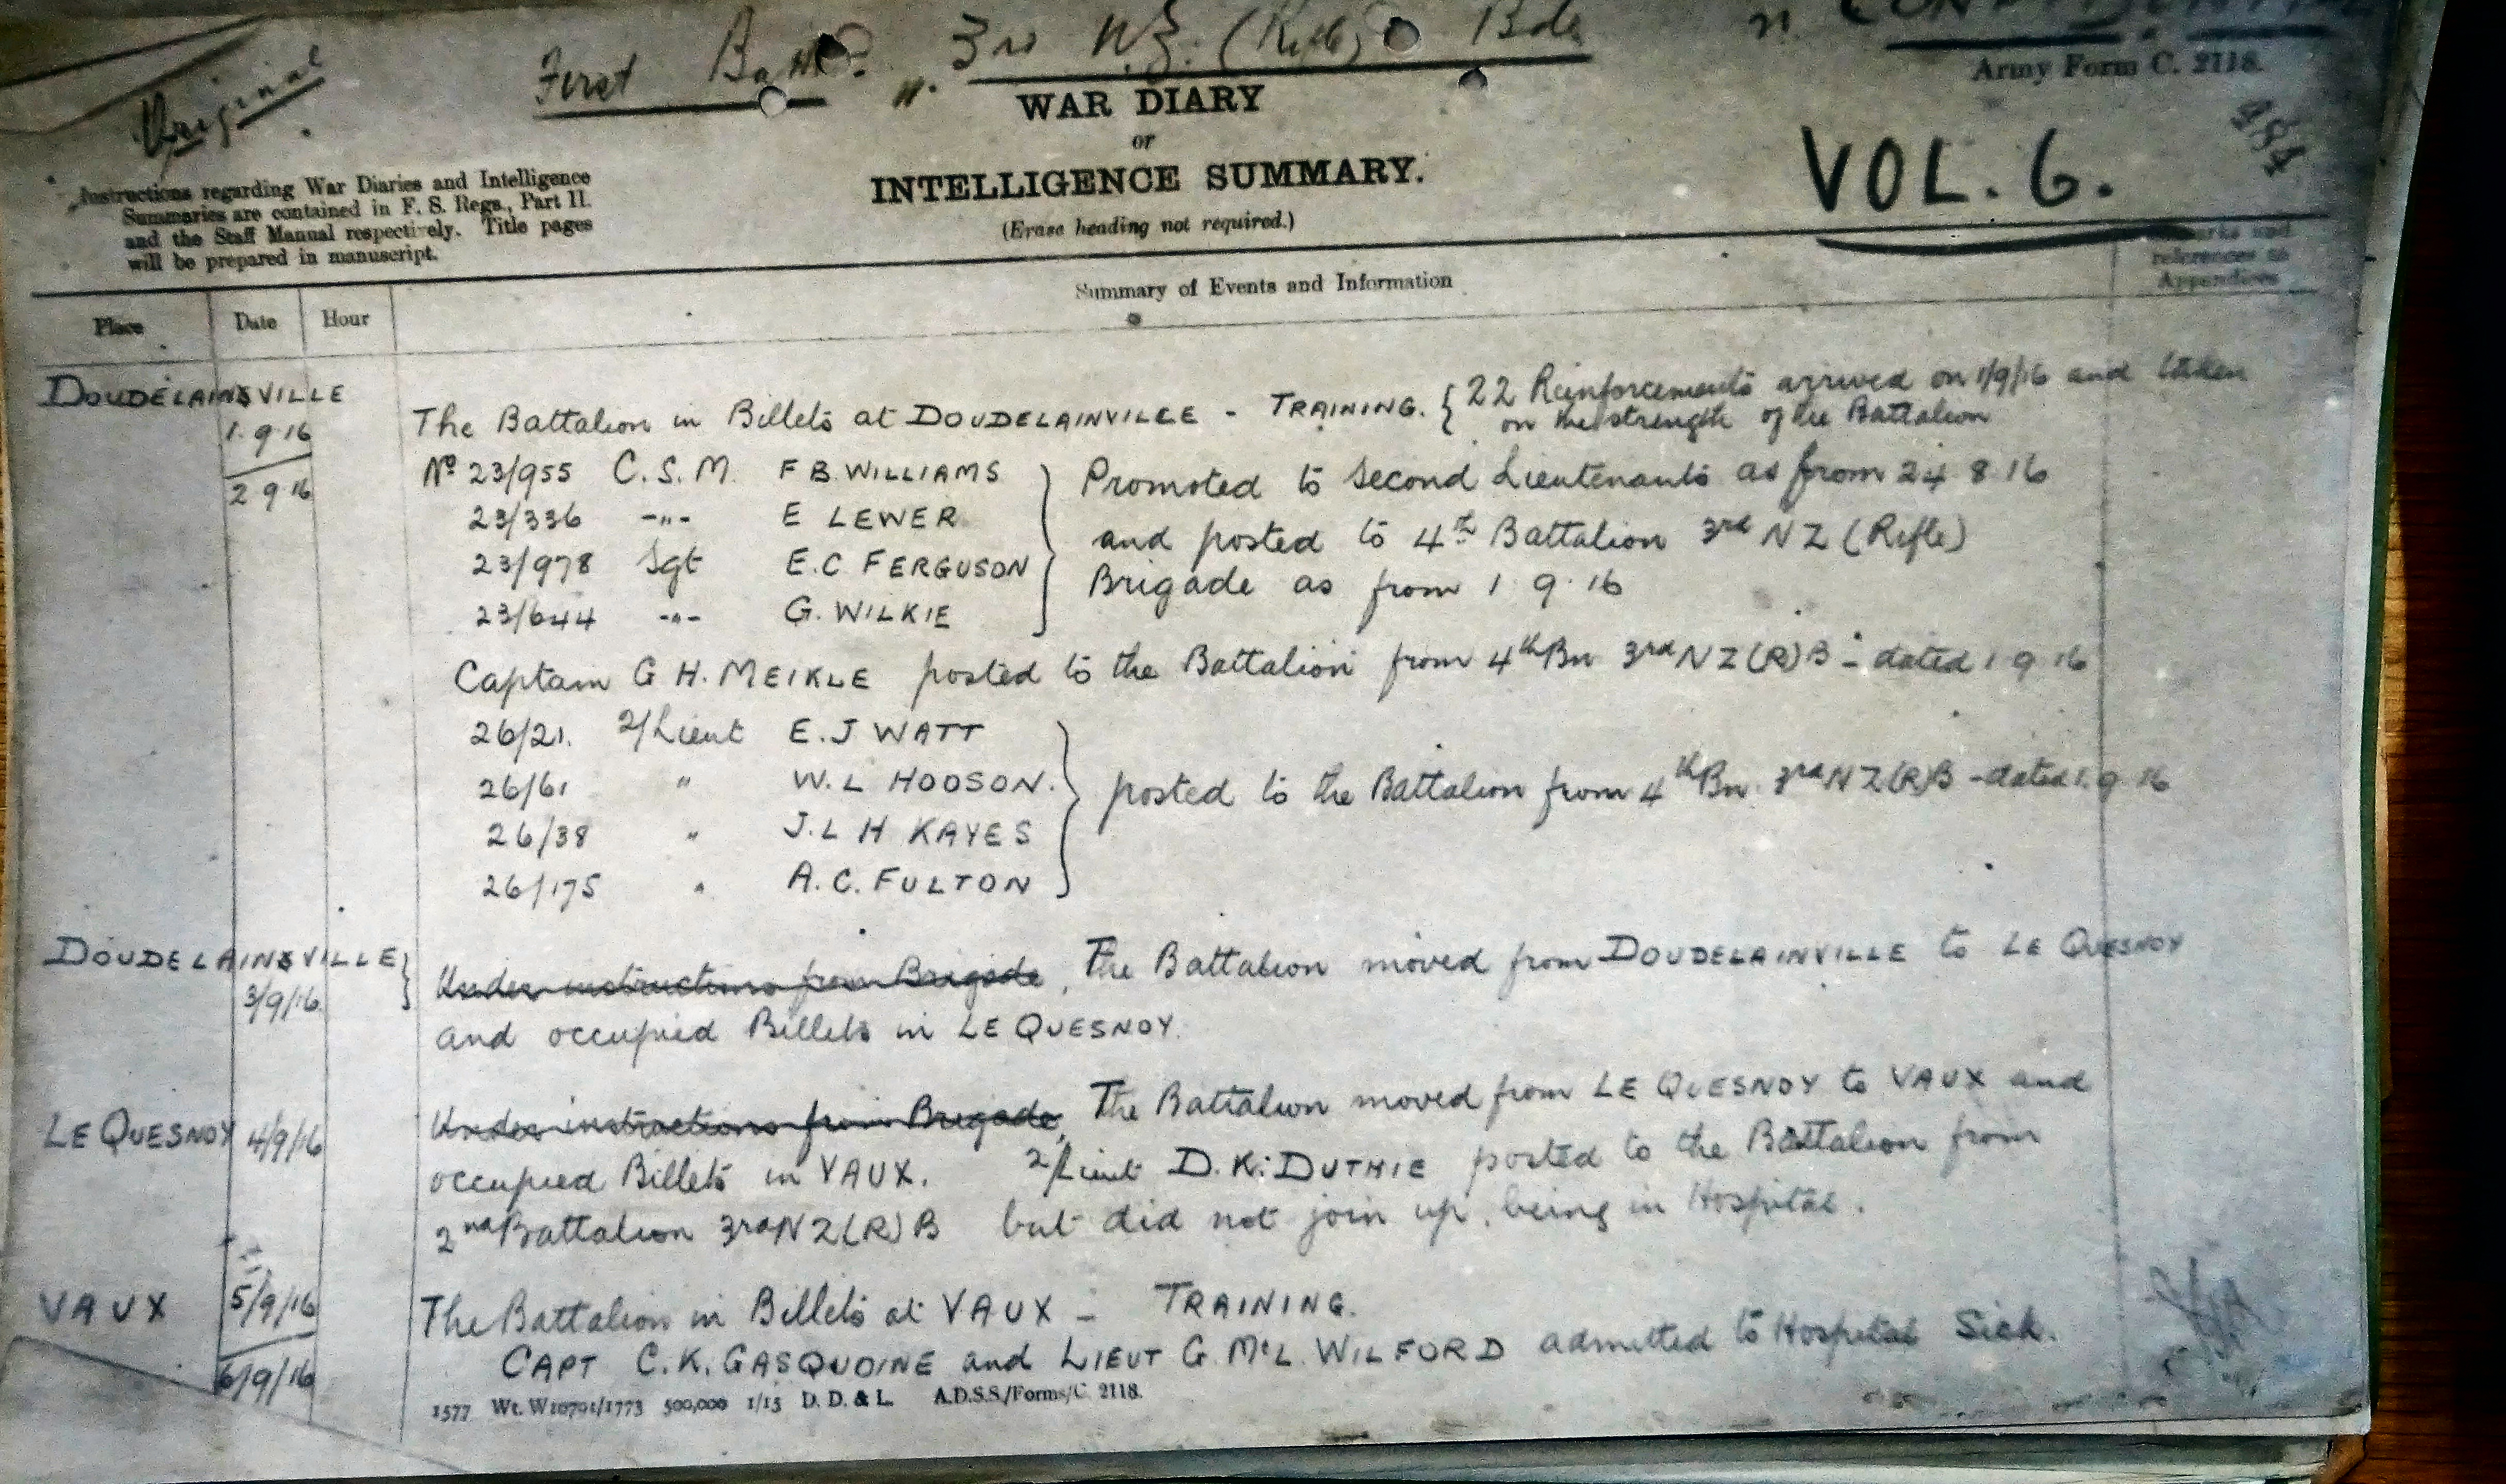 Original
First Battn. 3rd N.Z. (Rifle) Bde
CONFIDENTIAL
Army Form C. 2118.
WAR DIARY
or
INTELLIGENCE SUMMARY.
(Erase heading not required.)
VOL. 6.
Instructions regarding War Diaries and Intelligence
Summaries are contained in F. S. Regs., Part II.
and the Staff Manual respectively. Title pages
will be prepared in manuscript.
Place Date Hour Summary of Events and Information Remarks and
references to
Appendices
DOUDELAINSVILLE
1.9.16 The Battalion in Billets at DOUDELAINVILLE - TRAINING. { 22 Reinforcements arrived on 1/9/16 and taken
on the strength of the Battalion
2 9 16 No 23/955 C.S.M. F B. WILLIAMS } Promoted to Second Lieutenants as from 24 8 16
23/336 -"- E LEWER and posted to 4th Battalion 3rd NZ (Rifle)
23/978 Sgt E.C FERGUSON Brigade as from 1 9.16
23/644 -"- G. WILKIE
Captain G H. MEIKLE posted to the Battalion from 4th Bn 3rd NZ(R)B - dated 1 9 16
26/21. 2/Lieut E.J WATT
26/61 " W.L HODSON. } posted to the Battalion from 4th Bn. 3rd NZ(R)B - dated 1.9 16
26/38 " J.L H KAYES
26/175 " A.C. FULTON
DOUDELAINSVILLE }
3/9/16 Under instructions from Brigade, The Battalion moved from DOUDELAINVILLE to LE QUESNOY
and occupied Billets in LE QUESNOY.
LE QUESNOY 4/9/16 Under instructions from Brigade, The Battalion moved from LE QUESNOY to VAUX and
occupied Billets in VAUX. 2/Lieut D.K. DUTHIE posted to the Battalion from
2nd Battalion 3rd NZ(R)B but did not join up, being in Hospital.
VAUX 5/9/16 The Battalion in Billets at VAUX - TRAINING.
6/9/16 CAPT C.K. GASQUOINE and LIEUT G. McL. WILFORD admitted to Hospital Sick.
1577 Wt. W10791/1773 500,000 1/15 D. D. & L. A.D.S.S./Forms/C. 2118.